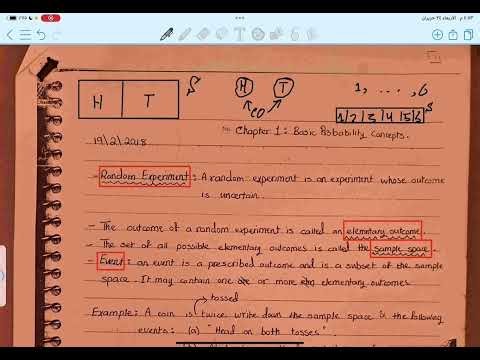 H T S
H T
eo
1, ..., 6
1 2 3 4 5 6 S
Chapter 1: Basic Probability Concepts.
19\2\2018
- Random Experiment: A random experiment is an experiment whose outcome
is uncertain.
- The outcome of a random experiment is called an elementary outcome.
- The set of all possible elementary outcomes is called the sample space.
- Event: an event is a prescribed outcome and is a subset of the sample
space. It may contain one or more elementary outcomes
tossed
Example: A coin is twice. write down the sample space & the following
events: (a) "Head on both tosses".